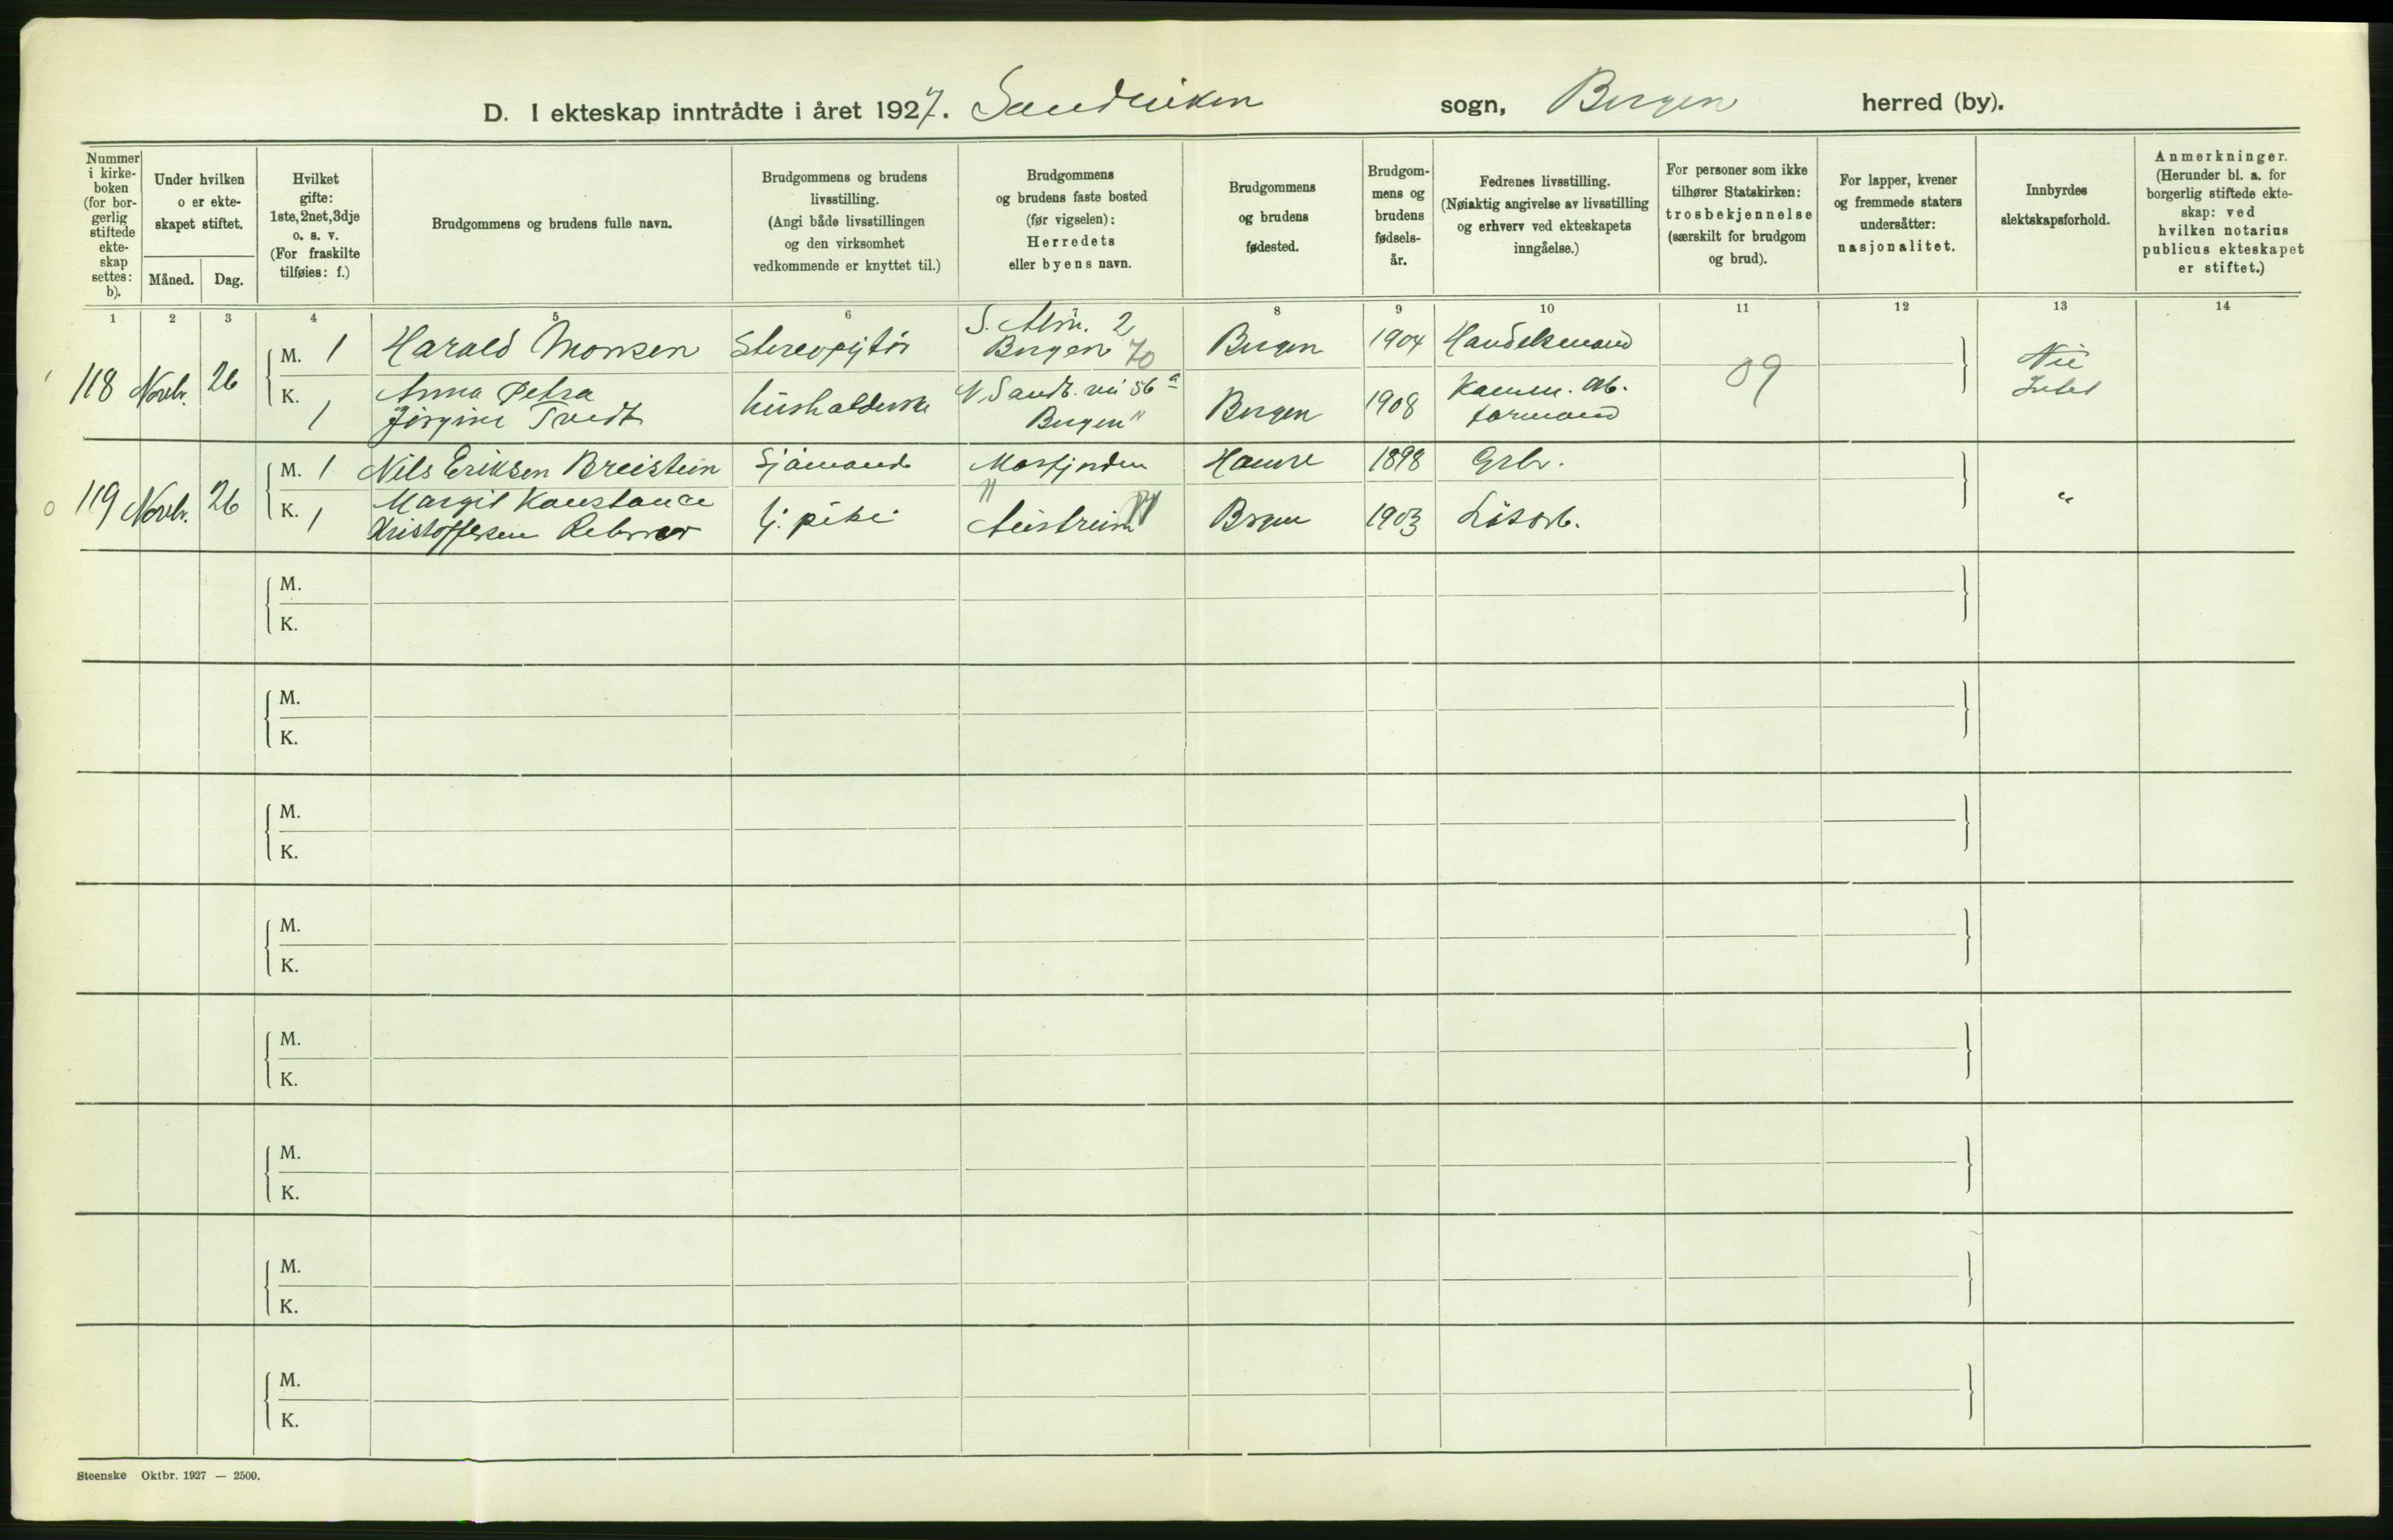 D. I ekteskap inntrådte i året 1927. Sandviken sogn, Bergen herred (by).
Nummer
i kirke-
boken
(for bor-
gerlig
stiftede
ekte-
skap
settes:
b).
Under hvilken
o er ekte-
skapet stiftet.
Måned. Dag.
Hvilket
gifte:
1ste, 2net, 3dje
o. s. v.
(For fraskilte
tilføies: f.)
Brudgommens og brudens fulle navn.
Brudgommens og brudens
livsstilling.
(Angi både livsstillingen
og den virksomhet
vedkommende er knyttet til.)
Brudgommens
og brudens faste bosted
(før vigselen):
Herredets
eller byens navn.
Brudgommens
og brudens
fødested.
Brudgom-
mens og
brudens
fødsels-
år.
Fedrenes livsstilling.
(Nøiaktig angivelse av livsstilling
og erhverv ved ekteskapets
inngåelse.)
For personer som ikke
tilhører Statskirken:
trosbekjennelse
(særskilt for brudgom
og brud).
For lapper, kvener
og fremmede staters
undersåtter:
nasjonalitet.
Innbyrdes
slektskapsforhold.
Anmerkninger.
(Herunder bl. a. for
borgerlig stiftede ekte-
skap: ved
hvilken notarius
publicus ekteskapet
er stiftet.)
1 2 3 4 5 6 7 8 9 10 11 12 13 14
118 Novbr. 26
M. 1 Harald Monsen S. Alm. 2 Bergen 70 Bergen 1904 Handelsmand
K. 1 Anna Petra
Jørgine Tvedt husholderske N. Sandv. vei 56 a
Bergen " Bergen 1908 Komm. arb.
formand
09
119 Novbr. 26
M. 1 Nils Eriksen Breistein Sjømand Masfjorden Hamre 1898 Grbr.
K. 1 Margit Konstance
Kristoffersen tj. pike Austreim 1903 Løsarb.
"
M.
K.
M.
K.
M.
K.
M.
K.
M.
K.
M.
K.
M.
K.
M.
K.
Steenske Oktbr. 1927 — 2500.